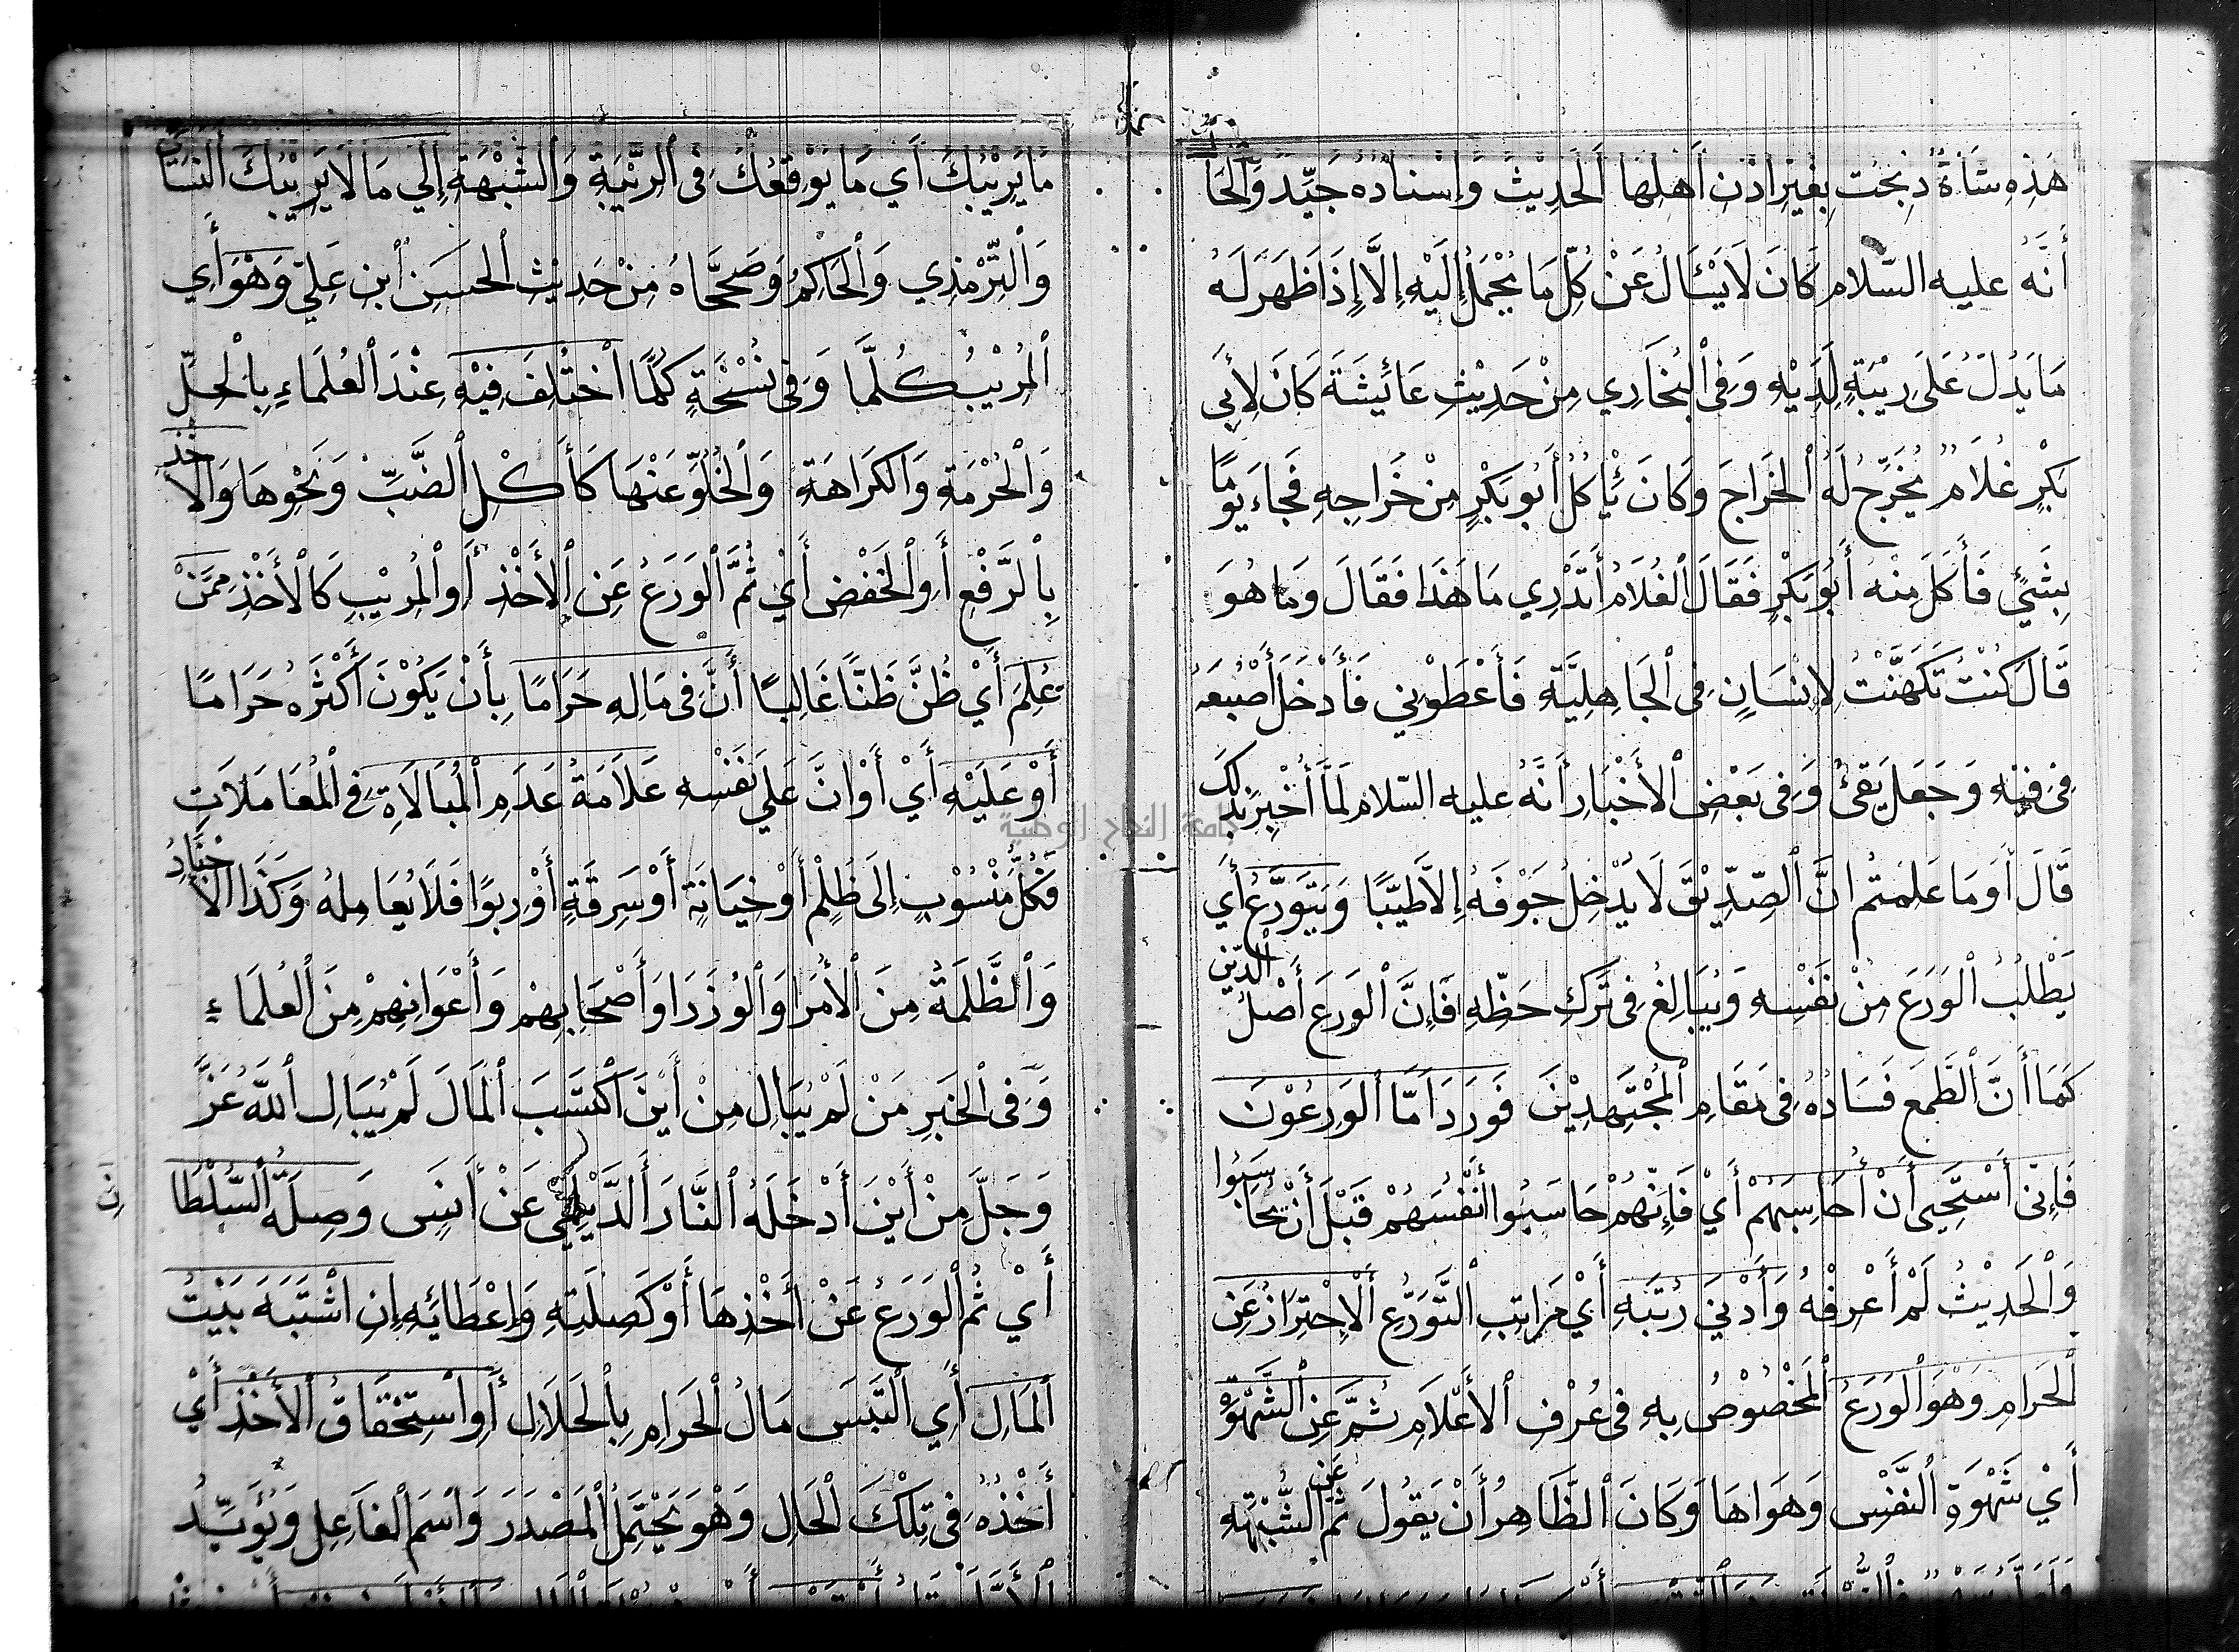 هَذِهِ شَاةٌ ذُبِحَتْ بِغَيْرِ اذْنِ أَهْلِهَا الْحَدِيْثَ وَإِسْنَادُهُ جَيِّدٌ وَالْحَا
أَنَّهُ عليه السّلام كَانَ لَا يَسْئَالُ عَنْ كُلِّ مَا يُحْمَلُ إِلَيْهِ إِلَّا إِذَا ظَهَرَ لَهُ
مَا يَدُلُّ عَلَى رِيْبَةٍ لَدَيْهِ وَفِى الْبُخَارِي مِنْ حَدِيْثِ عَائِشَةَ كَانَ لِأَبِى
بَكْرٍ غُلَامٌ يُخَرِّجُ لَهُ الْخَرَاجَ وَكَانَ يَأْكُلُ أَبُو بَكْرٍ مِنْ خَرَاجِهِ فَجَاءَ يَوْمًا
بِشَيْئٍ فَأَكَلَ مِنْهُ أَبُو بَكْرٍ فَقَالَ الْغُلَامُ أَتَدْرِي مَا هَذَا فَقَالَ وَمَا هُوَ
قَالَ كُنْتُ تَكَهَّنْتُ لِإِنْسَانٍ فِى الْجَاهِلِيَّةِ فَأَعْطَوْنِي فَأَدْخَلَ أُصْبُعَهُ
فِى فِيْهِ وَجَعَلَ يَقِئُ وَفِى بَعْضِ الْأَخْبَارِ أَنَّهُ عليه السّلام لَمَّا أُخْبِرَ بِذَلِكَ
قَالَ أَوَمَا عَلِمْتُمْ انَّ الصِّدِّيْقَ لَا يُدْخِلُ جَوْفَهُ إِلَّا طَيِّبًا وَيَتَوَرَّعُ أَي
يَطْلُبُ الْوَرَعَ مِنْ نَفْسِهِ وَيُبَالِغُ فِى تَرْكِ حَظِّهِ فَإِنَّ الْوَرَعَ أَصْلُ الدِّيْنِ
كَمَا أَنَّ الطَّمَعَ فَسَادُهُ فِى مَقَامِ الْمُجْتَهِدِيْنَ فَوَرَدَ أَمَّا الْوَرِعُوْنَ
فَإِنِّى أَسْتَحْيِى أَنْ أُحَاسِبَهُمْ أَيْ فَإِنَّهُمْ حَاسَبُوا أَنْفُسَهُمْ قَبْلَ أَنْ يُحَاسَبُوا
وَالْحَدِيْثُ لَمْ أَعْرِفْهُ وَأَدْنَى رُتْبَةٍ أَيْ مَرَاتِبِ التَّوَرُّعِ الْإِحْتِرَازُ عَنِ
الْحَرَامِ وَهْوَ الْوَرَعُ الْمَخْصُوْصُ بِهِ فِى عُرْفِ الْأَعْلَامِ ثُمَّ عَنِ الشَّهْوَةِ
أَيْ شَهْوَةِ النَّفْسِ وَهَوَاهَا وَكَانَ الظَّاهِرُ أَنْ يَقُولَ ثُمَّ عَنِ الشُّبْهَةِ
مَا يُرِيْبُكَ أَي مَا يُوْقِعُكَ فِى الرِّيْبَةِ وَالشُّبْهَةِ إِلَى مَا لَا يُرِيْبُكَ النَّسَائِي
وَالتِّرْمِذِي وَالْحَاكِمُ وَصَحَّحَاهُ مِنْ حَدِيْثِ الْحَسَنِ ابْنِ عَلِيٍّ وَهْوَ أَي
الْمُرِيْبُ كُلَّمَا وَفِى نُسْخَةٍ كُلُّ مَا اخْتُلِفَ فِيْهِ عِنْدَ الْعُلَمَاءِ بِالْحِلِّ
وَالْحُرْمَةِ وَالْكَرَاهَةِ وَالْخُلُوِّ عَنْهَا كَأَكْلِ الضَّبِّ وَنَحْوِهَا وَالْأَخْذ
بِالرَّفْعِ أَوِ الْخَفْضِ أَيْ ثُمَّ الْوَرَعُ عَنِ الْأَخْذِ أَوِ الْمُرِيْبِ كَالْأَخْذِ مِمَّنْ
عُلِمَ أَيْ ظُنَّ ظَنًّا غَالِبًا أَنَّ فِى مَالِهِ حَرَامًا بِأَنْ يَكُوْنَ أَكْثَرُهُ حَرَامًا
أَوْ عَلَيْهِ أَيْ أَوْ انَّ عَلَى نَفْسِهِ عَلَامَةُ عَدَمِ الْمُبَالَاةِ فِى الْمُعَامَلَاتِ
فَكُلُّ مَنْسُوْبٍ إِلَى ظُلْمٍ أَوْ خِيَانَةٍ أَوْ سَرِقَةٍ أَوْ رِبوًا فَلَا يُعَامِلهُ وَكَذَا الْأَجْنَادُ
وَالظَّلَمَةُ مِنَ الْأُمَرَا وَالْوُزَرَا وَأَصْحَابِهِمْ وَأَعْوَانِهِمْ مِنَ الْعُلَمَاءِ
وَفِى الْخَبَرِ مَنْ لَمْ يُبَالِ مِنْ أَيْنَ اكْتَسَبَ الْمَالَ لَمْ يُبَالِ اللهُ عَزَّ
وَجَلَّ مِنْ أَيْنَ أَدْخَلَهُ النَّارَ الدَّيْلَمِيّ عَنْ أَنَسٍ وَصِلَةُ السُّلْطَانِ
أَيْ ثُمَّ الْوَرَعُ عَنْ أَخْذِهَا أَوْ كَصِلَتِهِ وَإِعْطَائِهِ إِنِ اشْتَبَهَ بَيْتُ
الْمَالِ أَي الْتَبَسَ مَالُ الْحَرَامِ بِالْحَلَالِ أَوِ اسْتِحْقَاقُ الْأَخْذِ أَيْ
أَخْذُهُ فِى تِلْكَ الْحَالِ وَهْوَ يَحْتَمِلُ الْمَصْدَرَ وَاسْمَ الْفَاعِلِ وَيُؤَيِّدُ
جامعة النجاح الوطنية